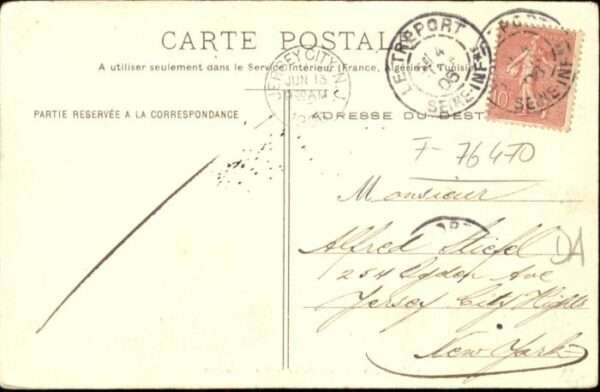 CARTE POSTALE
A utiliser seulement dans le Service Intérieur (France, Algérie et Tunisie)
PARTIE RESERVÉE A LA CORRESPONDANCE
ADRESSE DU DEST
JERSEY CITY, N.J.
JUN 15
AM
LE TREPORT
4
06
SEINE-INFRE
PORT
06
SEINE INF
10
F-76470
Monsieur
Alfred Stiefel
254 Ogden Ave
Jersey City Hights
New York
DA